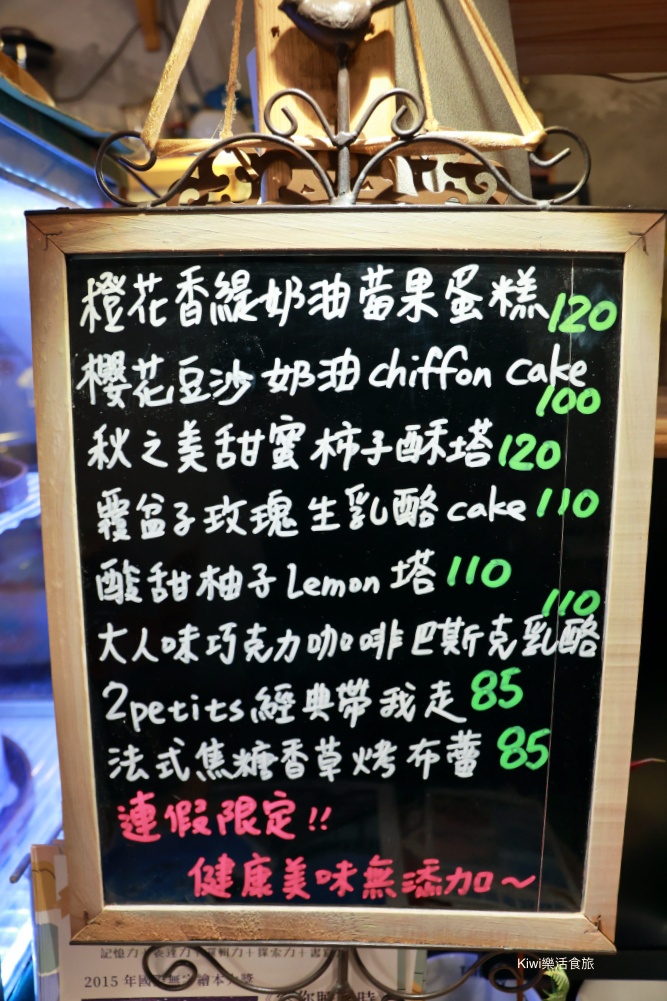 橙花香緹奶油莓果蛋糕 120
櫻花豆沙奶油chiffon cake 100
秋之美甜蜜柿子酥塔 120
覆盆子玫瑰生乳酪cake 110
酸甜柚子Lemon塔 110
大人味巧克力咖啡巴斯克乳酪 110
2petits經典帶我走 85
法式焦糖香草烤布蕾 85
連假限定!!
健康美味無添加~
2015 年國
Kiwi樂活食旅